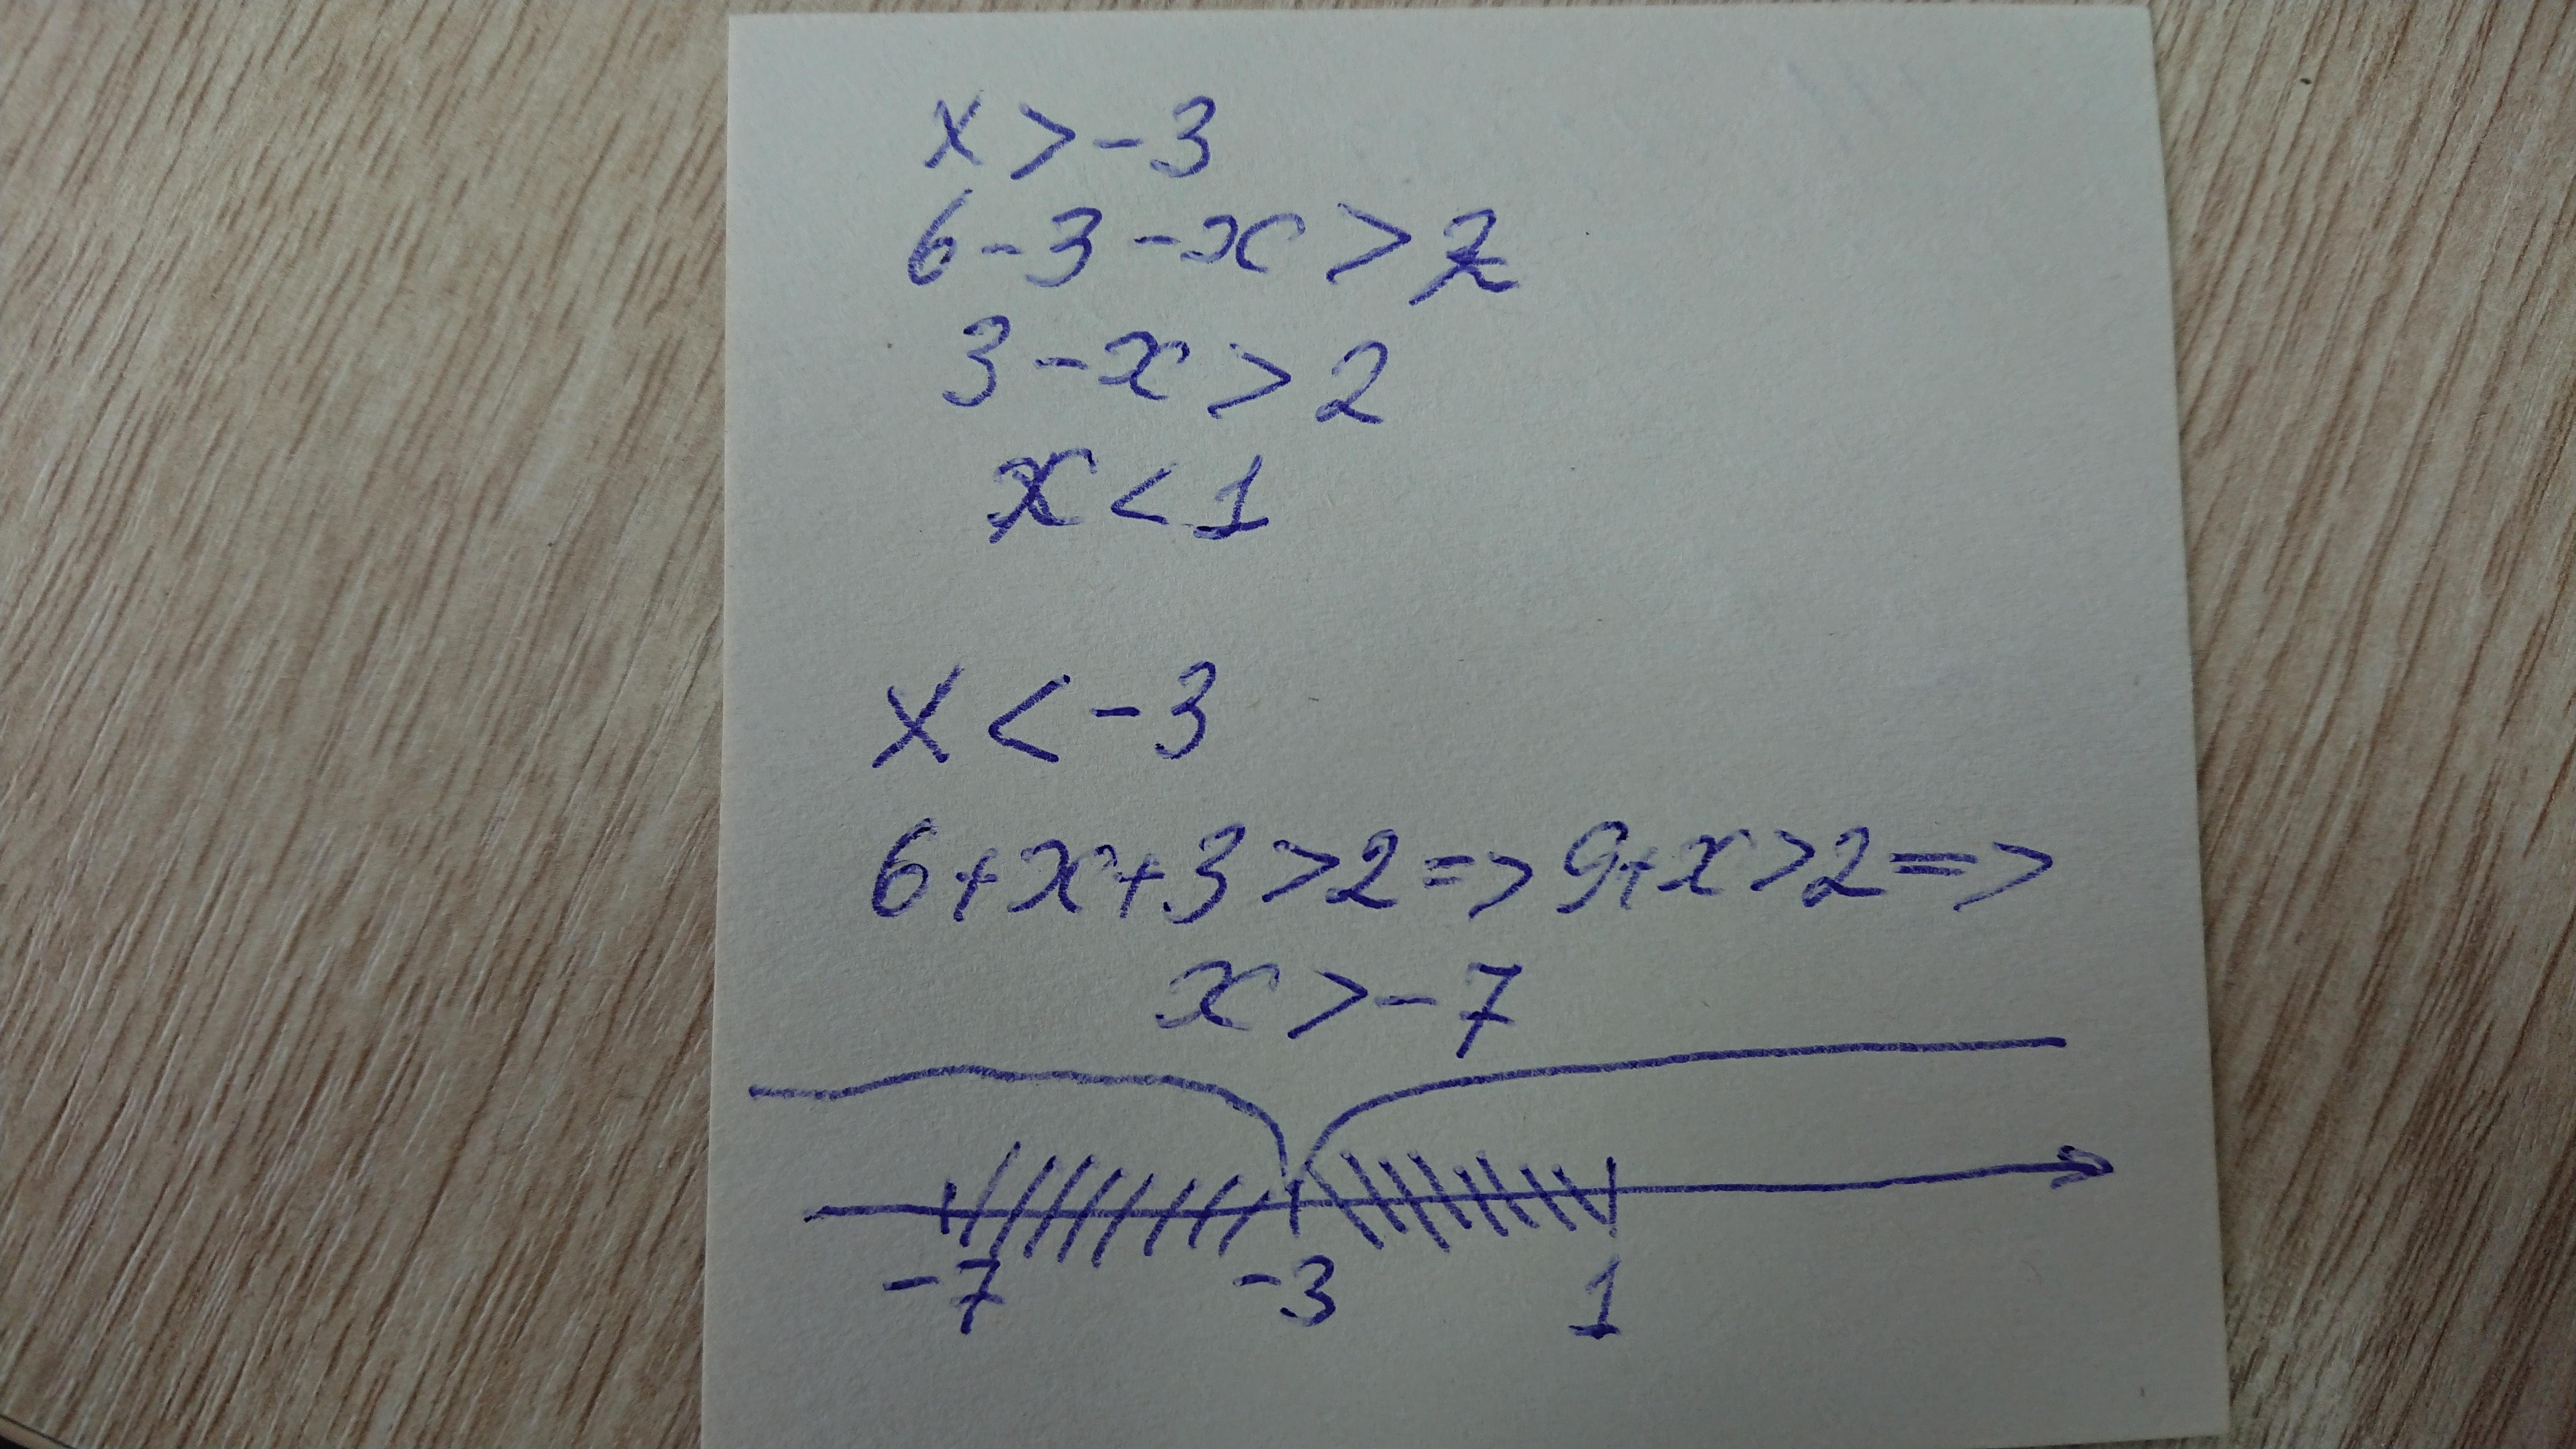 x > -3
6 - 3 - x > 2
3 - x > 2
x < 1
x < -3
6 + x + 3 > 2 => 9 + x > 2 =>
x > -7
-7 -3 1